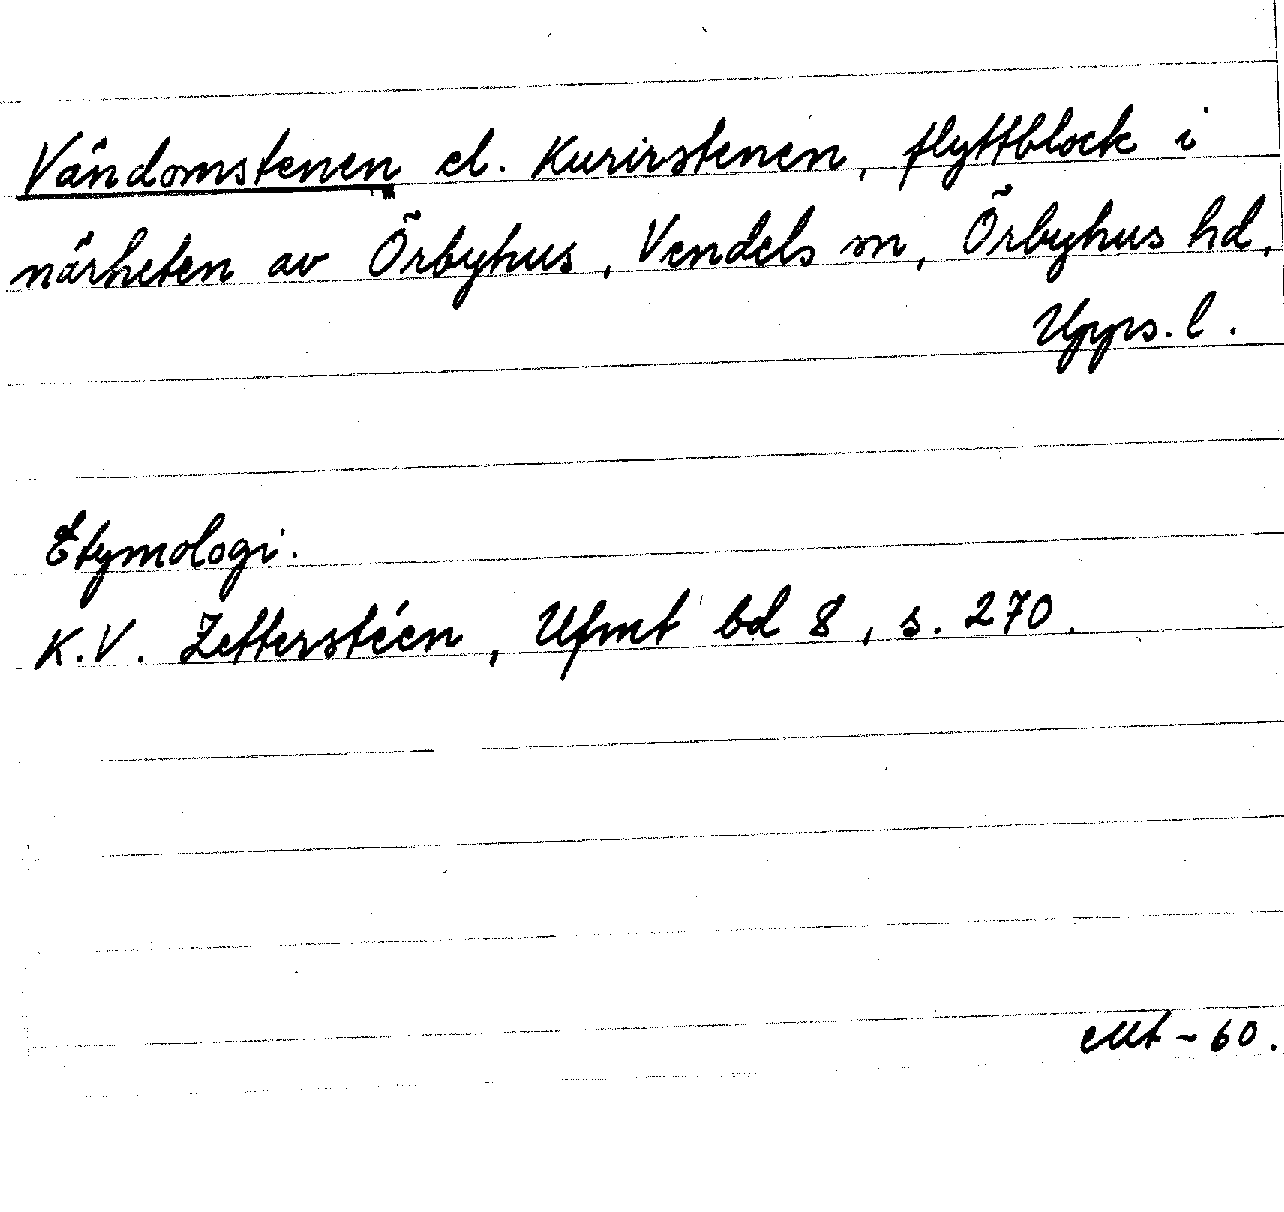 Vändomstenen el. Kurirstenen, flyttblock i
närheten av Örbyhus, Vendels sn, Örbyhus hd,
Upps. l.
Etymologi.
K.V. Zetterstéen, Ufmt bd 8, s. 270.
Mt-60.